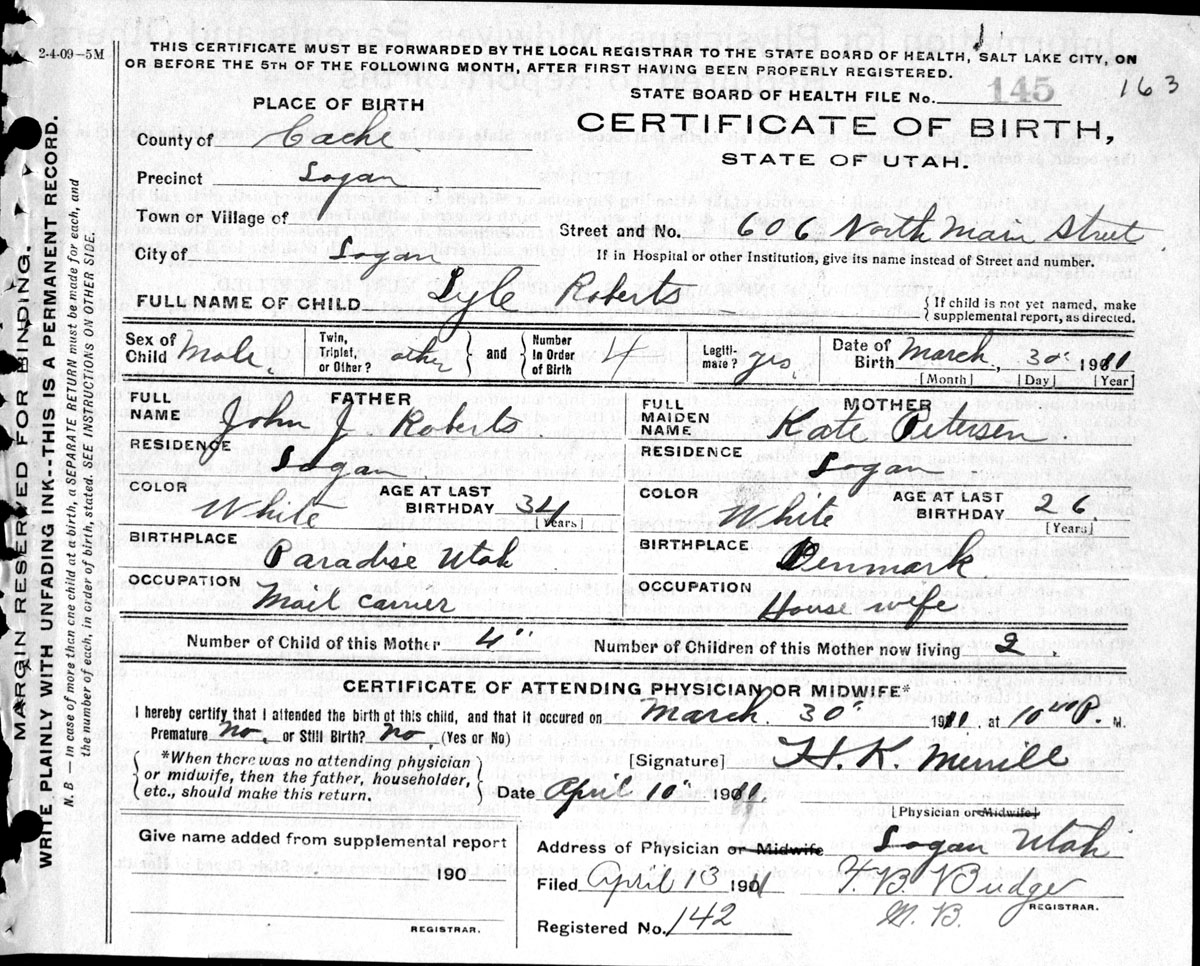 2-4-09—5M
THIS CERTIFICATE MUST BE FORWARDED BY THE LOCAL REGISTRAR TO THE STATE BOARD OF HEALTH, SALT LAKE CITY, ON
OR BEFORE THE 5TH OF THE FOLLOWING MONTH, AFTER FIRST HAVING BEEN PROPERLY REGISTERED.
STATE BOARD OF HEALTH FILE No. 145 163
PLACE OF BIRTH
CERTIFICATE OF BIRTH,
STATE OF UTAH.
County of Cache
Precinct Logan
Town or Village of
Street and No. 606 North Main Street
City of Logan
If in Hospital or other Institution, give its name instead of Street and number.
FULL NAME OF CHILD Lyle Roberts
{If child is not yet named, make
supplemental report, as directed.
Sex of Child Male.
Twin, Triplet, or Other? other } and { Number In Order of Birth 4
Legiti- mate? yes,
Date of Birth March, 30" 1911
[Month] [Day] [Year]
FATHER
FULL NAME John J Roberts.
RESIDENCE Logan
COLOR White AGE AT LAST BIRTHDAY 34 [Years]
BIRTHPLACE Paradise Utah
OCCUPATION Mail Carrier
MOTHER
FULL MAIDEN NAME Kate Petersen.
RESIDENCE Logan
COLOR White AGE AT LAST BIRTHDAY 26. [Years]
BIRTHPLACE Denmark
OCCUPATION House wife
Number of Child of this Mother 4" Number of Children of this Mother now living 2.
CERTIFICATE OF ATTENDING PHYSICIAN OR MIDWIFE*
I hereby certify that I attended the birth of this child, and that it occured on March 30" 1911 at 10 40 P. M.
Premature No, or Still Birth? No, (Yes or No)
{*When there was no attending physician
or midwife, then the father, householder,
etc., should make this return.}
[Signature] H. K. Merrill
Date April 10" 1911.
[Physician or Midwife]
Give name added from supplemental report
190
REGISTRAR.
Address of Physician or Midwife Logan Utah
Filed April 13 1911 T. B. Budge
M. B. REGISTRAR.
Registered No. 142
MARGIN RESERVED FOR BINDING.
WRITE PLAINLY WITH UNFADING INK--THIS IS A PERMANENT RECORD.
N. B — In case of more than one child at a birth, a SEPARATE RETURN must be made for each, and
the number of each, in order of birth, stated. SEE INSTRUCTIONS ON OTHER SIDE.